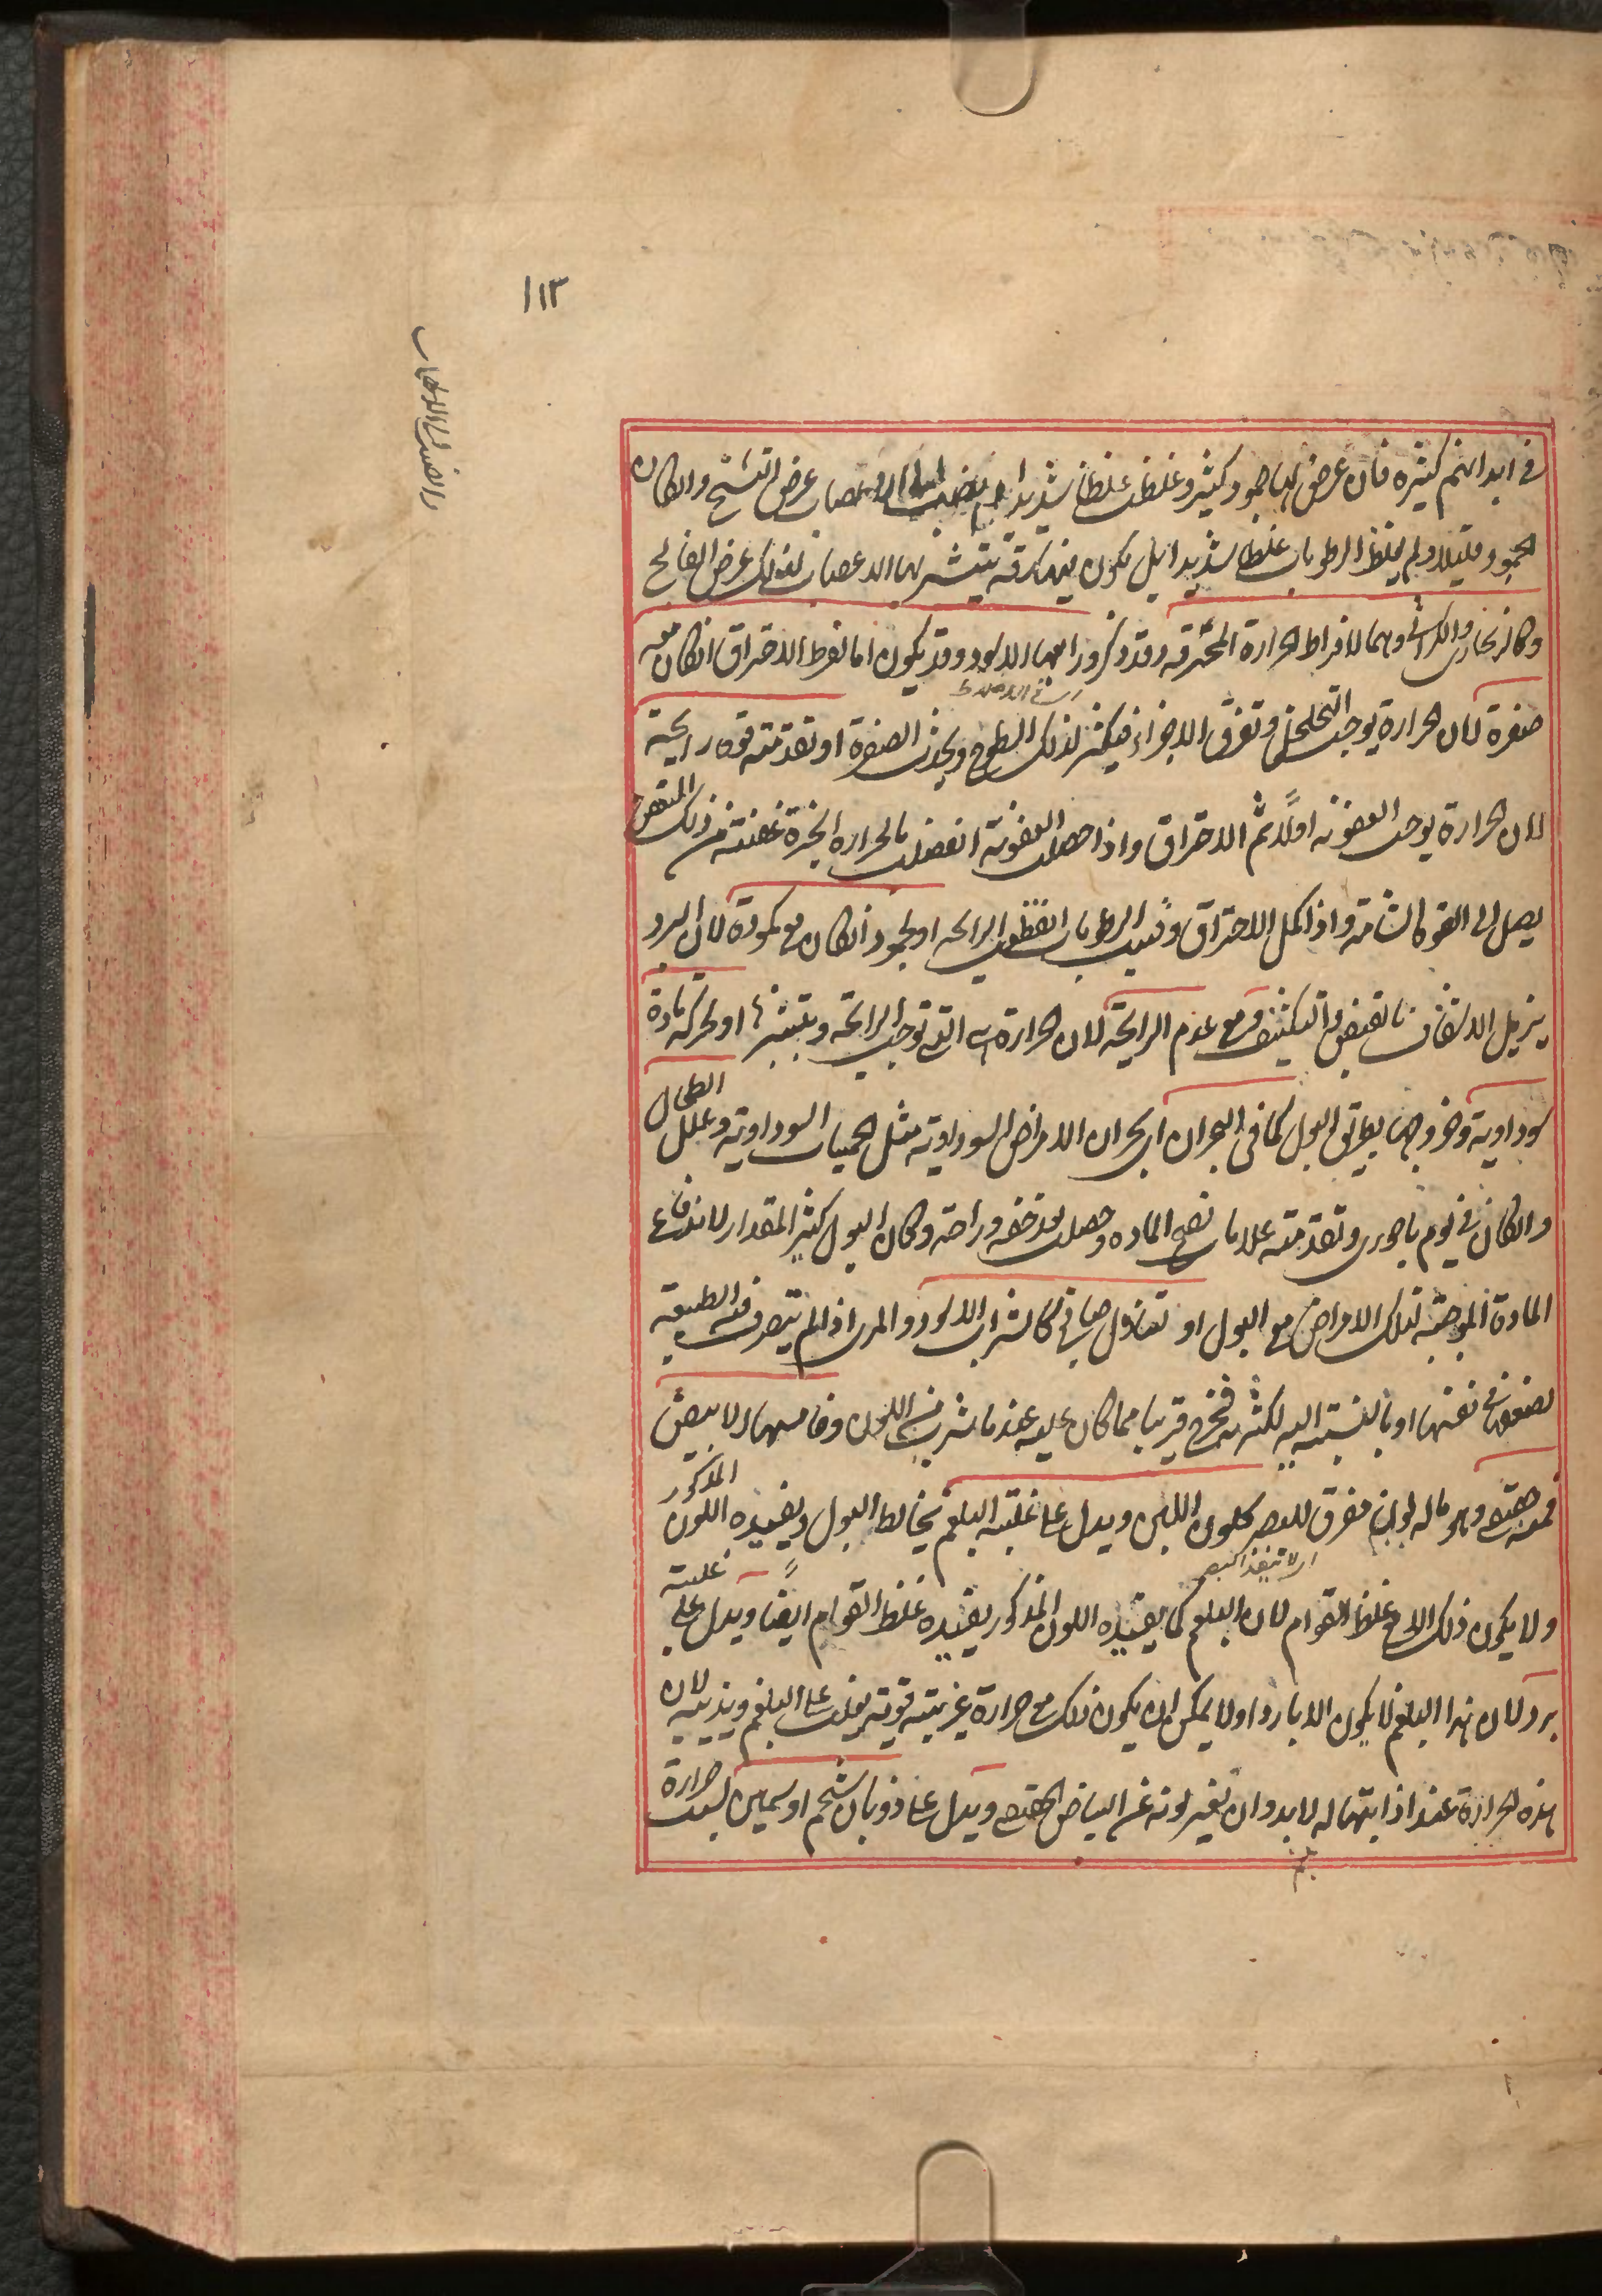 ١١٣
في ابدانهم كثيره فان عرض لها جمود كثير وغلظت غلظا شديدا عرض التشنج وان كان
الجمود قليلا ولم يغلظ الرطوبات غلظا شديدا بل يكون فيها رقة يتشربها الاعصاب لذلك عرض الفالج
وكالزنجاري والكراثي وهما لافراط الحرارة المحرقة وقد ذكر ورابعها الاسود وقد يكون اما لفرط الاحتراق ان كان معه
صفرة لان الحرارة يوجب التخلخل وتفرق الاجزاء فيكثر لذلك السطوح ويحدث الصفرة او تقدمته قوة رايحة
لان الحرارة يوجب العفونة اولاً ثم الاحتراق واذا حصلت العفونة انفصلت بالحرارة ابخرة عفنة من ذلك المتعفن
يصل الى القوة الشامة واذا كمل الاحتراق وفنيت الرطوبات انقطعت الرايحه او لجمود ان كان مع كمودة لان البرد
يزيل الاشفاف بالقبض والتكثيف ومع عدم الرايحة لان الحرارة هي التي توجب الرايحة وتثيرها او لحركة مادة
سوداوية وخروجها بطريق البول كما في البحران اي بحران الامراض السوداوية مثل الحميات السوداوية وعلل الطحال
وان كان في يوم باحوري وتقدمته علامات نضج المادة وحصلت بعده خفه وراحة وكان البول كثير المقدار لاندفاع
المادة الموجبة لتلك الامراض مع البول او تناول صابغ كالشراب الاسود والمري اذا لم يتصرف فيه الطبيعة
لضعفها في نفسها او بالنسبة اليه لكثرته فخرج قريبا مما كان عليه عند ما شرب من اللون وخامسها الابيض
فمنه حقيقي وهو ما له لون مفرق للبصر كلون اللبن ويدل على غلبة البلغم يخالط البول ويفيده اللون المذكور
لا ينفذ البصر
ولا يكون ذلك الا مع غلظ القوام لان البلغم كما يفيده اللون المذكور يفيده غلظ القوام ايضاً ويدل على غلبة
برد لان هذا البلغم لا يكون الا باردا ولا يمكن ان يكون ذلك مع حرارة غريبة قوية يغلب على البلغم ويذيبه لان
هذه الحرارة عند اذابتها له لا بد وان يغير لونه عن البياض الحقيقي ويدل على ذوبان شحم او سمين بسبب حرارة